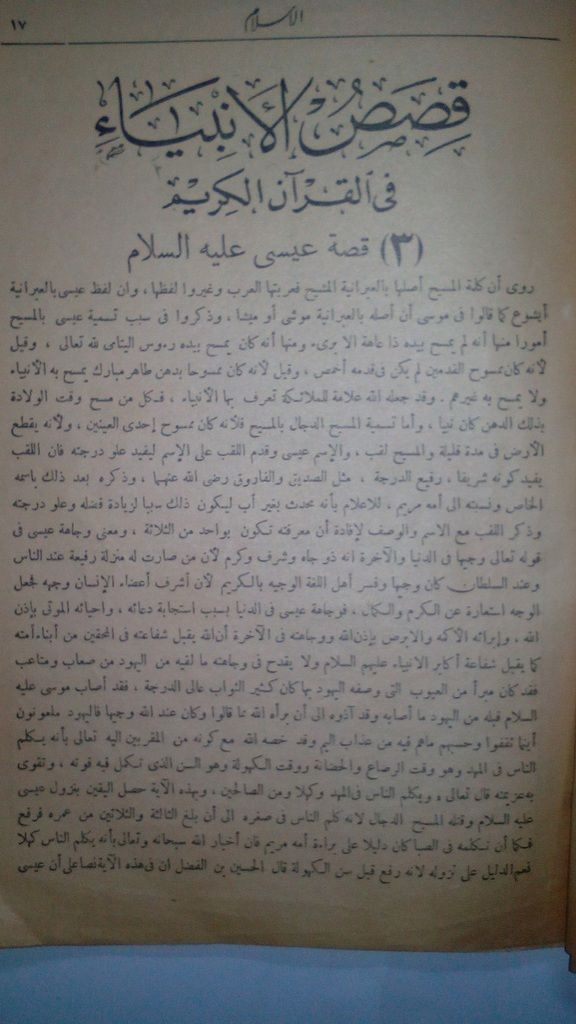 ١٧
الاسلام
قصص الأنبياء
فى القرآن الكريم
(٣) قصة عيسى عليه السلام
روى أن كلمة المسيح أصلها بالعبرانية المشيح فعربتها العرب وغيروا لفظها ، وان لفظ عيسى بالعبرانية
أيشوع كما قالوا فى موسى أن أصله بالعبرانية موشى أو ميشا ، وذكروا فى سبب تسمية عيسى بالمسيح
أمورا منها أنه لم يمسح بيده ذا عاهة الا برىء ومنها أنه كان يمسح بيده رءوس اليتامى لله تعالى ، وقيل
لأنه كان ممسوح القدمين لم يكن فى قدمه أخمص ، وقيل لأنه كان ممسوحا بدهن طاهر مبارك يمسح به الأنبياء
ولا يمسح به غيرهم . وقد جعله الله علامة للملائكة تعرف بها الأنبياء ، فكل من مسح وقت الولادة
بذلك الدهن كان نبيا ، وأما تسمية المسيح الدجال بالمسيح فلأنه كان ممسوح إحدى العينين ، ولأنه يقطع
الأرض فى مدة قليلة والمسيح لقب ، والإسم عيسى وقدم اللقب على الإسم ليفيد علو درجته فان اللقب
يفيد كونه شريفا ، رفيع الدرجة ، مثل الصديق والفاروق رضى الله عنهما ، وذكره بعد ذلك باسمه
الخاص ونسبته الى أمه مريم ، للاعلام بأنه محدث بغير أب ليكون ذلك سببا لزيادة فضله وعلو درجته
وذكر اللقب مع الاسم والوصف لإفادة أن معرفته تكون بواحد من الثلاثة ، ومعنى وجاهة عيسى فى
قوله تعالى وجيها فى الدنيا والآخرة انه ذو جاه وشرف وكرم لأن من صارت له منزلة رفيعة عند الناس
وعند السلطان كان وجيها وفسر أهل اللغة الوجيه بالكريم لأن أشرف أعضاء الإنسان وجهه لجعل
الوجه استعارة عن الكرم والكمال ، فوجاهة عيسى فى الدنيا بسبب استجابة دعائه ، واحيائه الموتى بإذن
الله ، وإبرائه الأكمه والابرص بإذن الله ووجاهته فى الآخرة أن الله يقبل شفاعته فى المحقين من أبناء أمته
كما يقبل شفاعة أكابر الانبياء عليهم السلام ولا يقدح فى وجاهته ما لقيه من اليهود من صعاب ومتاعب
فقد كان مبرأ من العيوب التى وصفه اليهود بها كان كثير الثواب عالى الدرجة ، فقد أصاب موسى عليه
السلام قبله من اليهود ما أصابه وقد آذوه الى أن برأه الله مما قالوا وكان عند الله وجيها فاليهود ملعونون
أينما ثقفوا وحسبهم ماهم فيه من عذاب اليم وقد خصه الله مع كونه من المقربين اليه تعالى بأنه يكلم
الناس فى المهد وهو وقت الرضاع والحضانة ووقت الكهولة وهو السن الذى تكمل فيه قوته ، وتقوى
به عزيمته قال تعالى ويكلم الناس فى المهد وكهلا ومن الصالحين ، وبهذه الآية حصل اليقين بنزول عيسى
عليه السلام وقتله المسيح الدجال لانه كلم الناس فى صغره الى أن بلغ الثالثة والثلاثين من عمره فرفع
فكما أن تكلمه فى الصبا كان دليلا على براءة أمه مريم فان أخبار الله سبحانه وتعالى بأنه يكلم الناس كهلا
فعم الدليل على نزوله لانه رفع قبل سن الكهولة قال الحسين بن الفضل ان فى هذه الآية نصا على أن عيسى